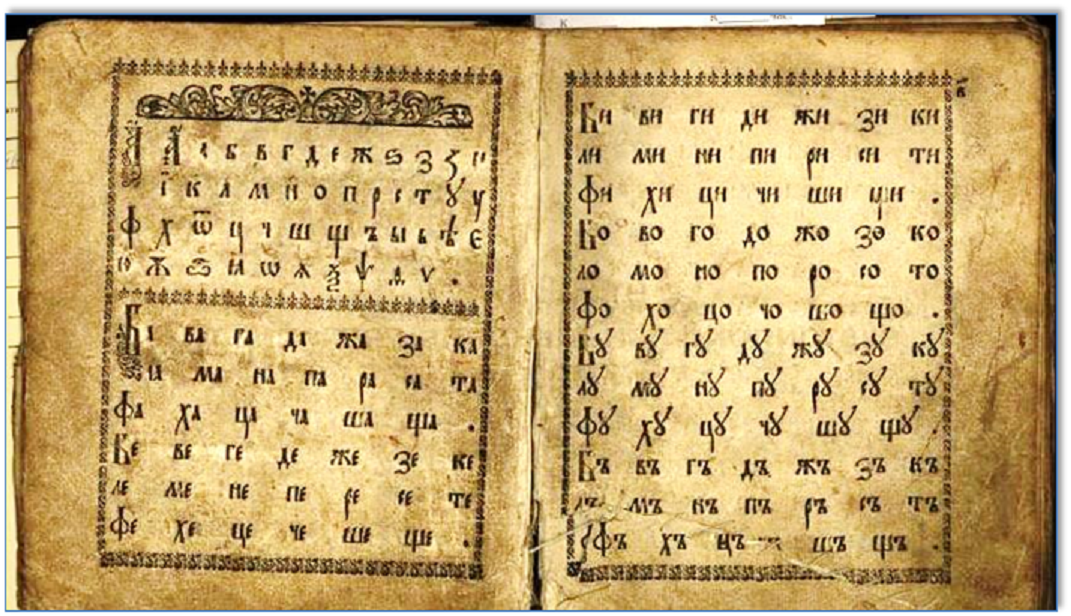 А а б в г д е ж ѕ з ꙁ и
і к л м н о п р с т ꙋ у
ф х ѿ ц ч ш щ ъ ы ь ѣ є
ю ѫ ѧ ѡ ѯ ѱ ѵ .
Ба ва га да жа за ка
ла ма на па ра са та
фа ха ца ча ша ща .
Бе ве ге де же зе ке
ле ме не пе ре се те
фе хе це че ше ще .
в҃
Би ви ги ди жи зи ки
ли ми ни пи ри си ти
фи хи ци чи ши щи .
Бо во го до жо зо ко
ло мо но по ро со то
фо хо цо чо шо що .
Бꙋ вꙋ гꙋ дꙋ жꙋ зꙋ кꙋ
лꙋ мꙋ нꙋ пꙋ рꙋ сꙋ тꙋ
фꙋ хꙋ цꙋ чꙋ шꙋ щꙋ .
Бъ въ гъ дъ жъ зъ къ
лъ мъ нъ пъ ръ съ тъ
фъ хъ цъ шъ щъ .